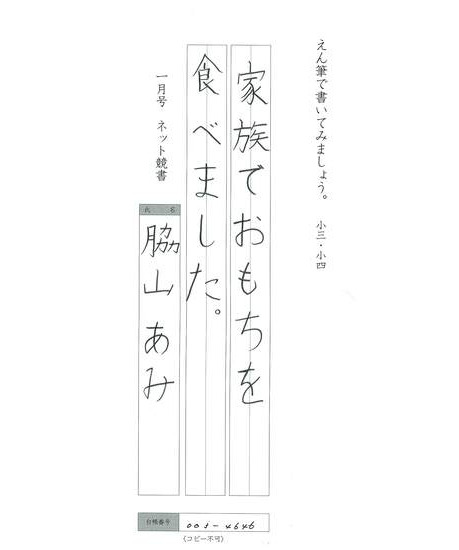 えん筆で書いてみましょう。 小三・小四
家族でおもちを
食べました。
一月号 ネット競書
氏 名
脇山あみ
台帳番号 003-4646
(コピー不可)